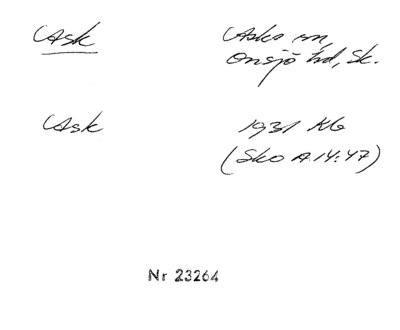 Ask Asks sn,
Onsjö hd, Sk.
Ask 1931 KG
(Sko A 14:47)
Nr 23264